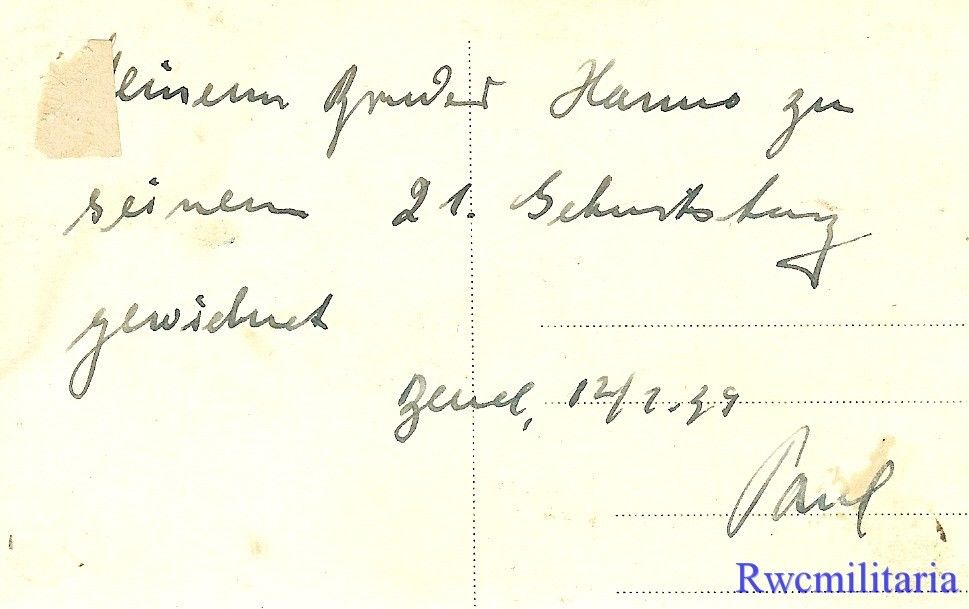 Meinem Bruder Hanno zu
seinem 21. Geburtstag
gewidmet
12/2.39
Paul
Rwcmilitaria